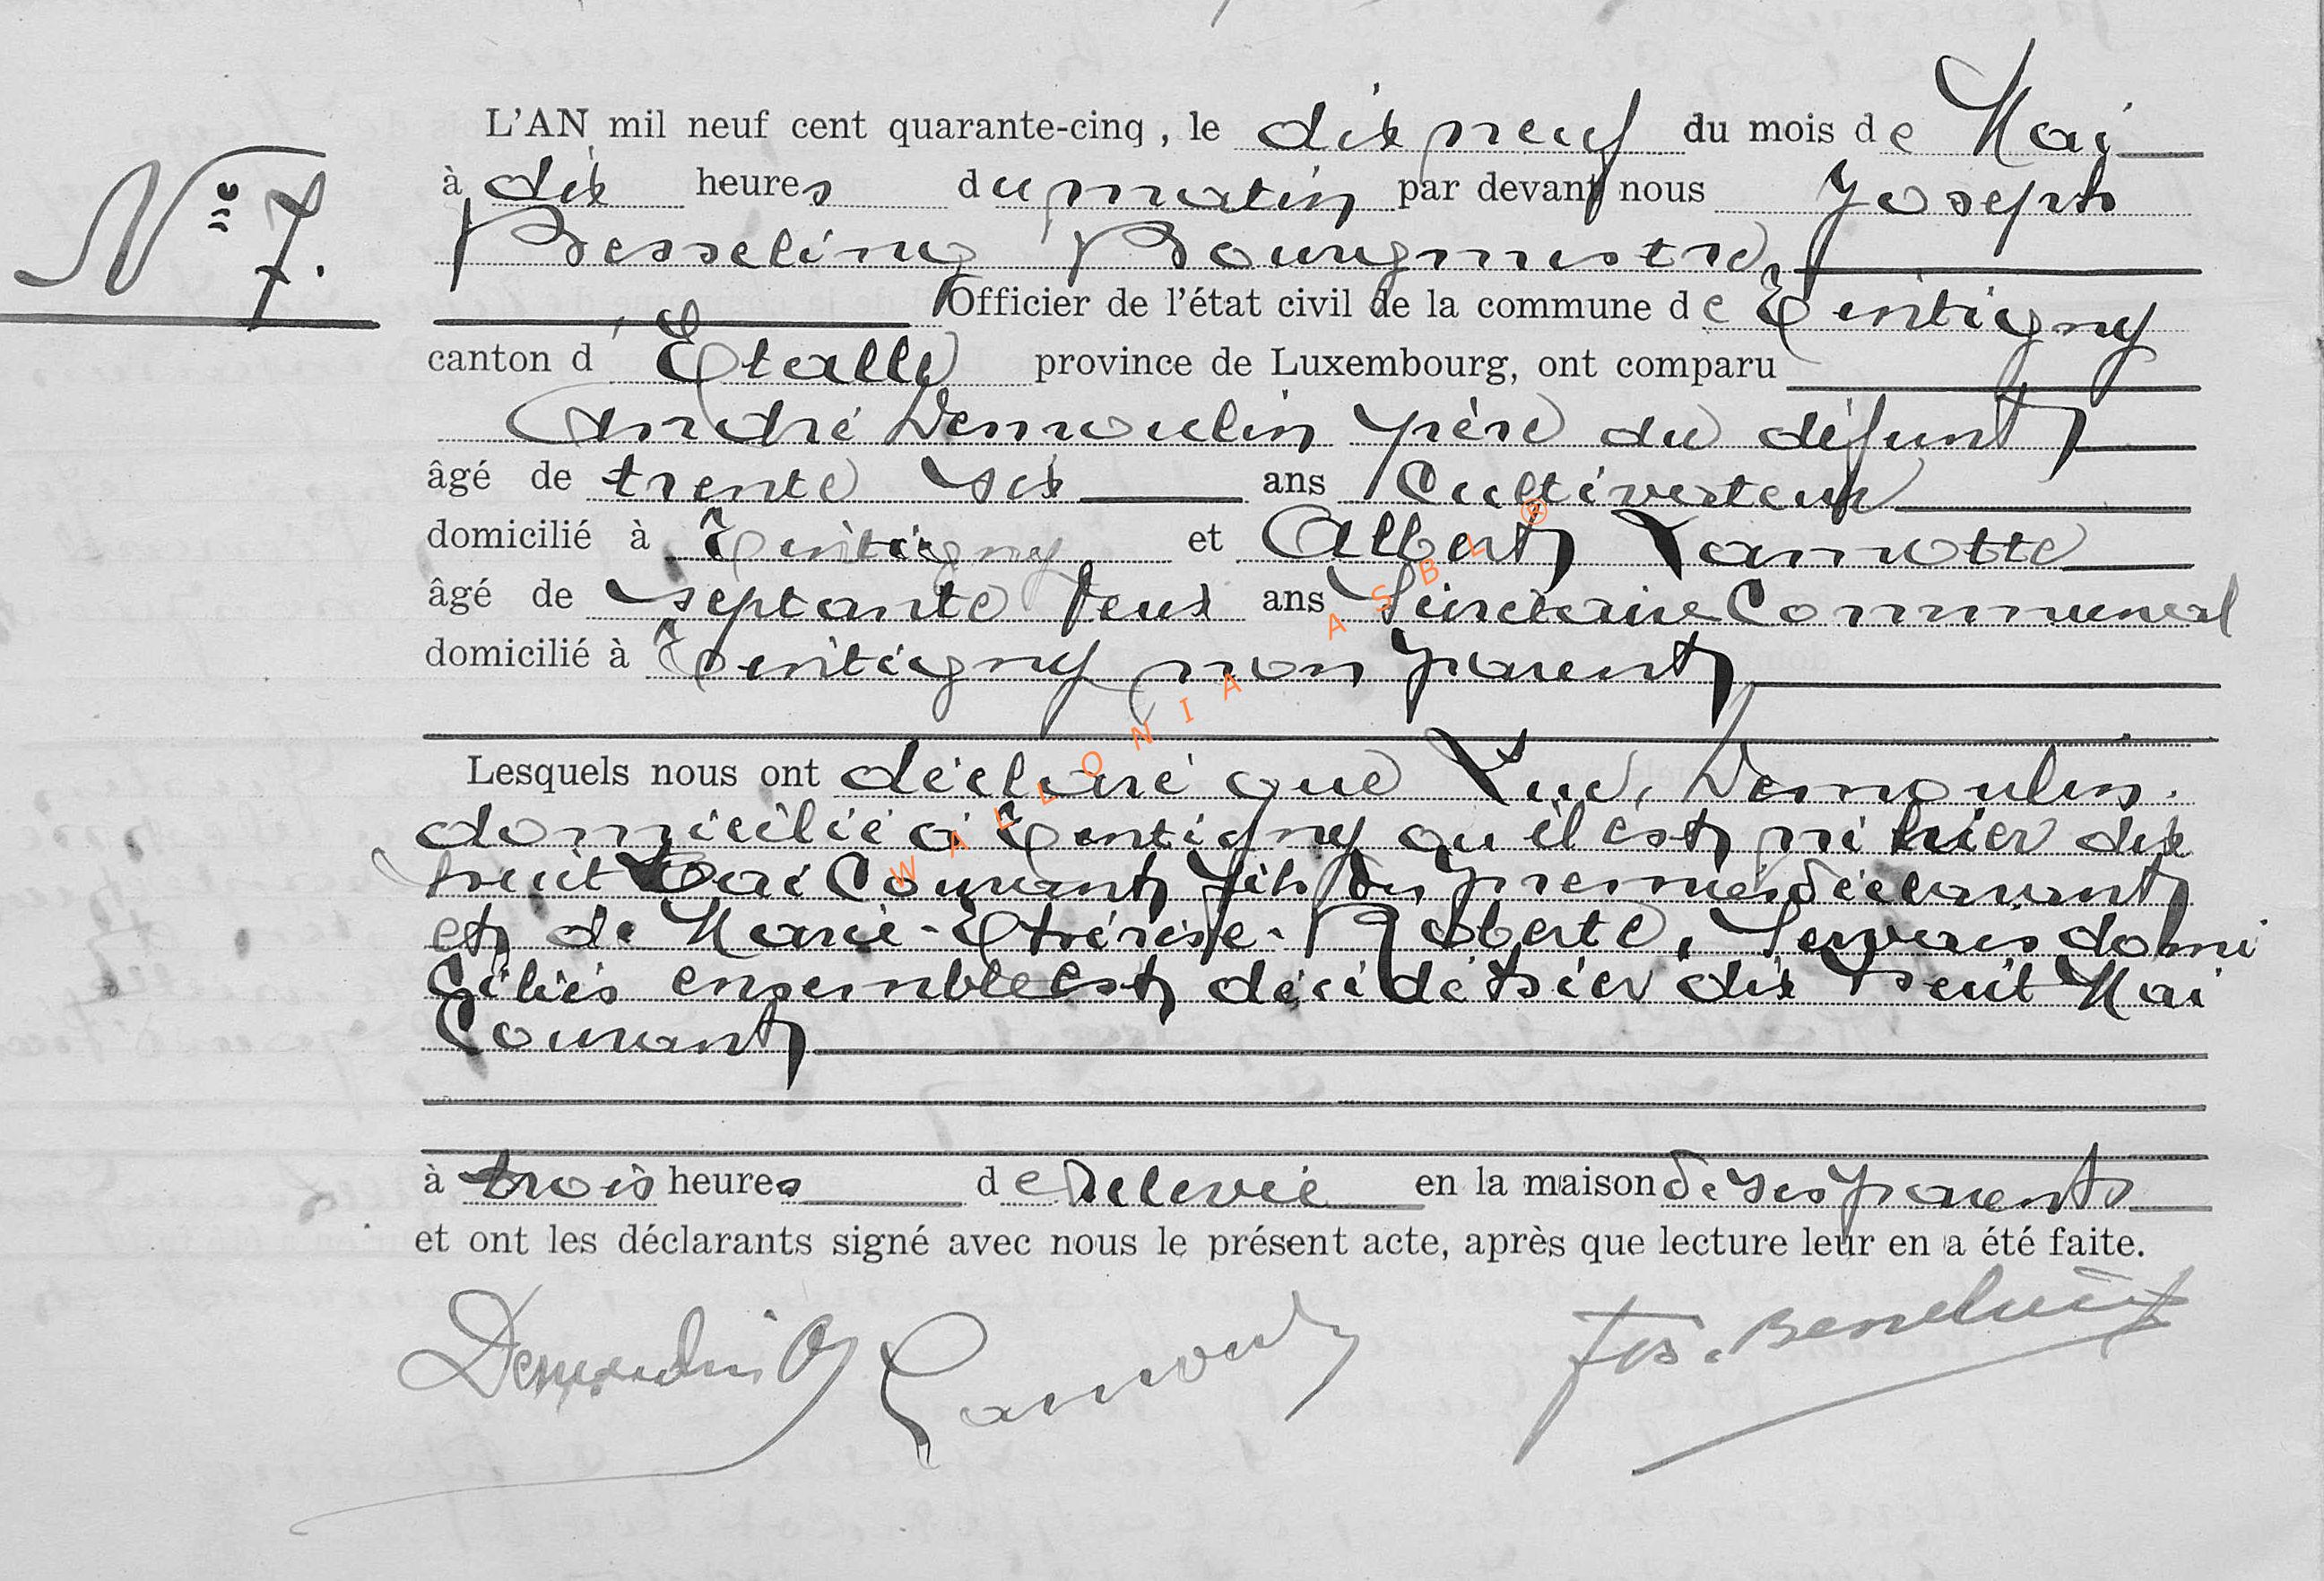 L'AN mil neuf cent quarante-cinq, le dix neuf du mois de Mai
N° 7.
à dix heures du matin par devant nous Joseph
Besseling Bourgmestre
Officier de l'état civil de la commune de Tintigny
canton d'Etalle province de Luxembourg, ont comparu
André Demoulin père du défunt
âgé de trente six ans Cultivateur
domicilié à Tintigny et Albert Lannotte
âgé de septante deux ans Secrétaire Communal
domicilié à Tintigny non parent
Lesquels nous ont déclaré que Luc, Demoulin.
domicilié à Tintigny qu'il est né hier dix
huit Mai Courant fils du premier déclarant
et de Marie-Thérèse-Roberte, Servais domi
ciliés ensemble est décédé hier dix huit Mai
Courant
à trois heures de relevée en la maison de ses parents
et ont les déclarants signé avec nous le présent acte, après que lecture leur en a été faite.
Demoulin A
WALLONIA ASBL ®